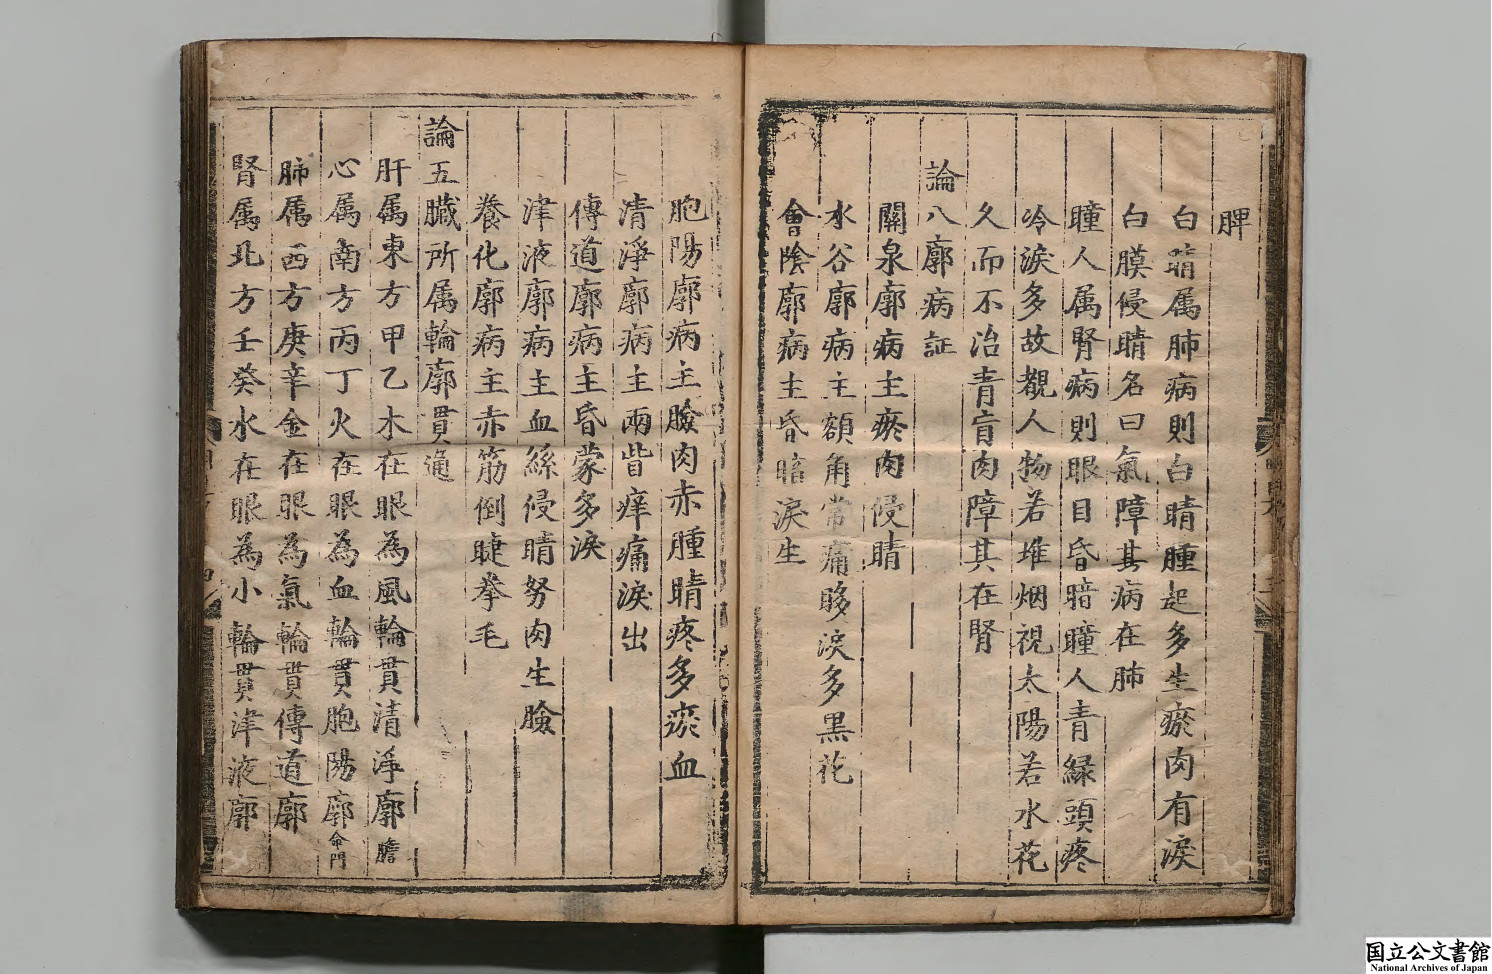 脾
白睛属肺病則白睛腫起多生瘀肉有淚
白膜侵睛名曰氣障其病在肺
瞳人属腎病則眼目昏暗瞳人青緑頭疼
冷淚多故覩人物若堆烟視太陽若水花
久而不治青盲肉障其在腎
論八廓病証
關泉廓病主瘀肉侵睛
水谷廓病主額角常痛眵淚多黒花
會陰廓病主昏暗淚生
胞陽廓病主臉肉赤腫睛疼多瘀血
清淨廓病主兩眥痒痛淚出
傳道廓病主昏蒙多淚
津液廓病主血絲侵睛努肉生臉
養化廓病主赤筋倒睫拳毛
論五臓所属輪廓貫通
肝属東方甲乙木在眼為風輪貫清淨廓膽
心属南方丙丁火在眼為血輪貫胞陽廓命門
肺属西方庚辛金在眼為氣輪貫傳道廓
腎属北方壬癸水在眼為小輪貫津液廓
国立公文書館
National Archives of Japan